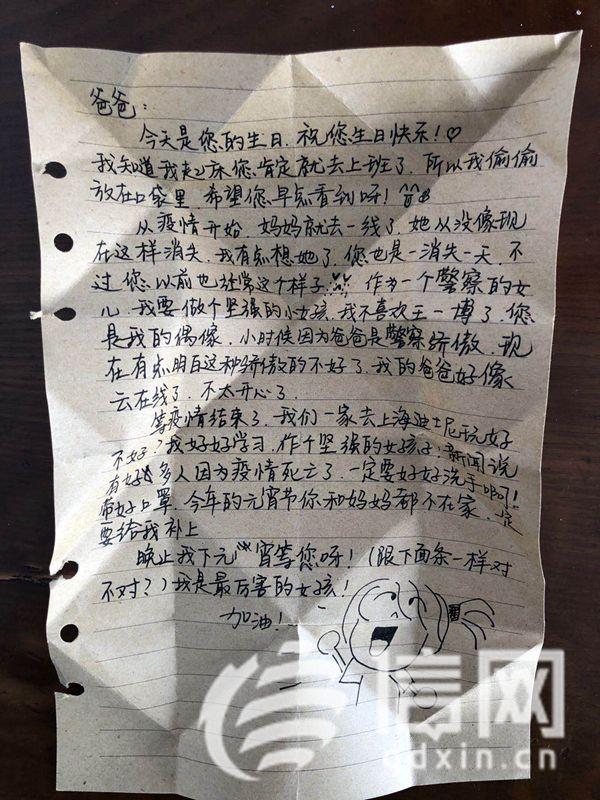 爸爸：
今天是您的生日，祝您生日快乐！♡
我知道我起床您肯定就去上班了，所以我偷偷
放在口袋里，希望您早点看到呀！
从疫情开始，妈妈就去一线了，她从没像现
在这样消失，我有点想她了，您也是一消失一天，不
过您以前也经常这个样子。作为一个警察的女
儿，我要做个坚强的小女孩，我不喜欢王一博了，您
是我的偶像，小时候因为爸爸是警察骄傲，现
在有点明白这种骄傲的不好了，我的爸爸好像
云在线了，不太开心了
等疫情结束了，我们一家去上海迪士尼玩好
不好？我好好学习，作个坚强的女孩子，新闻说
有好多人因为疫情死亡了，一定要好好洗手啊！
带好口罩，今年的元宵节你和妈妈都不在家，一定
要给我补上
晚上我下元宵等您呀！（跟下面条一样对
不对？）我是最厉害的女孩！
加油！
信网
qdxin.cn